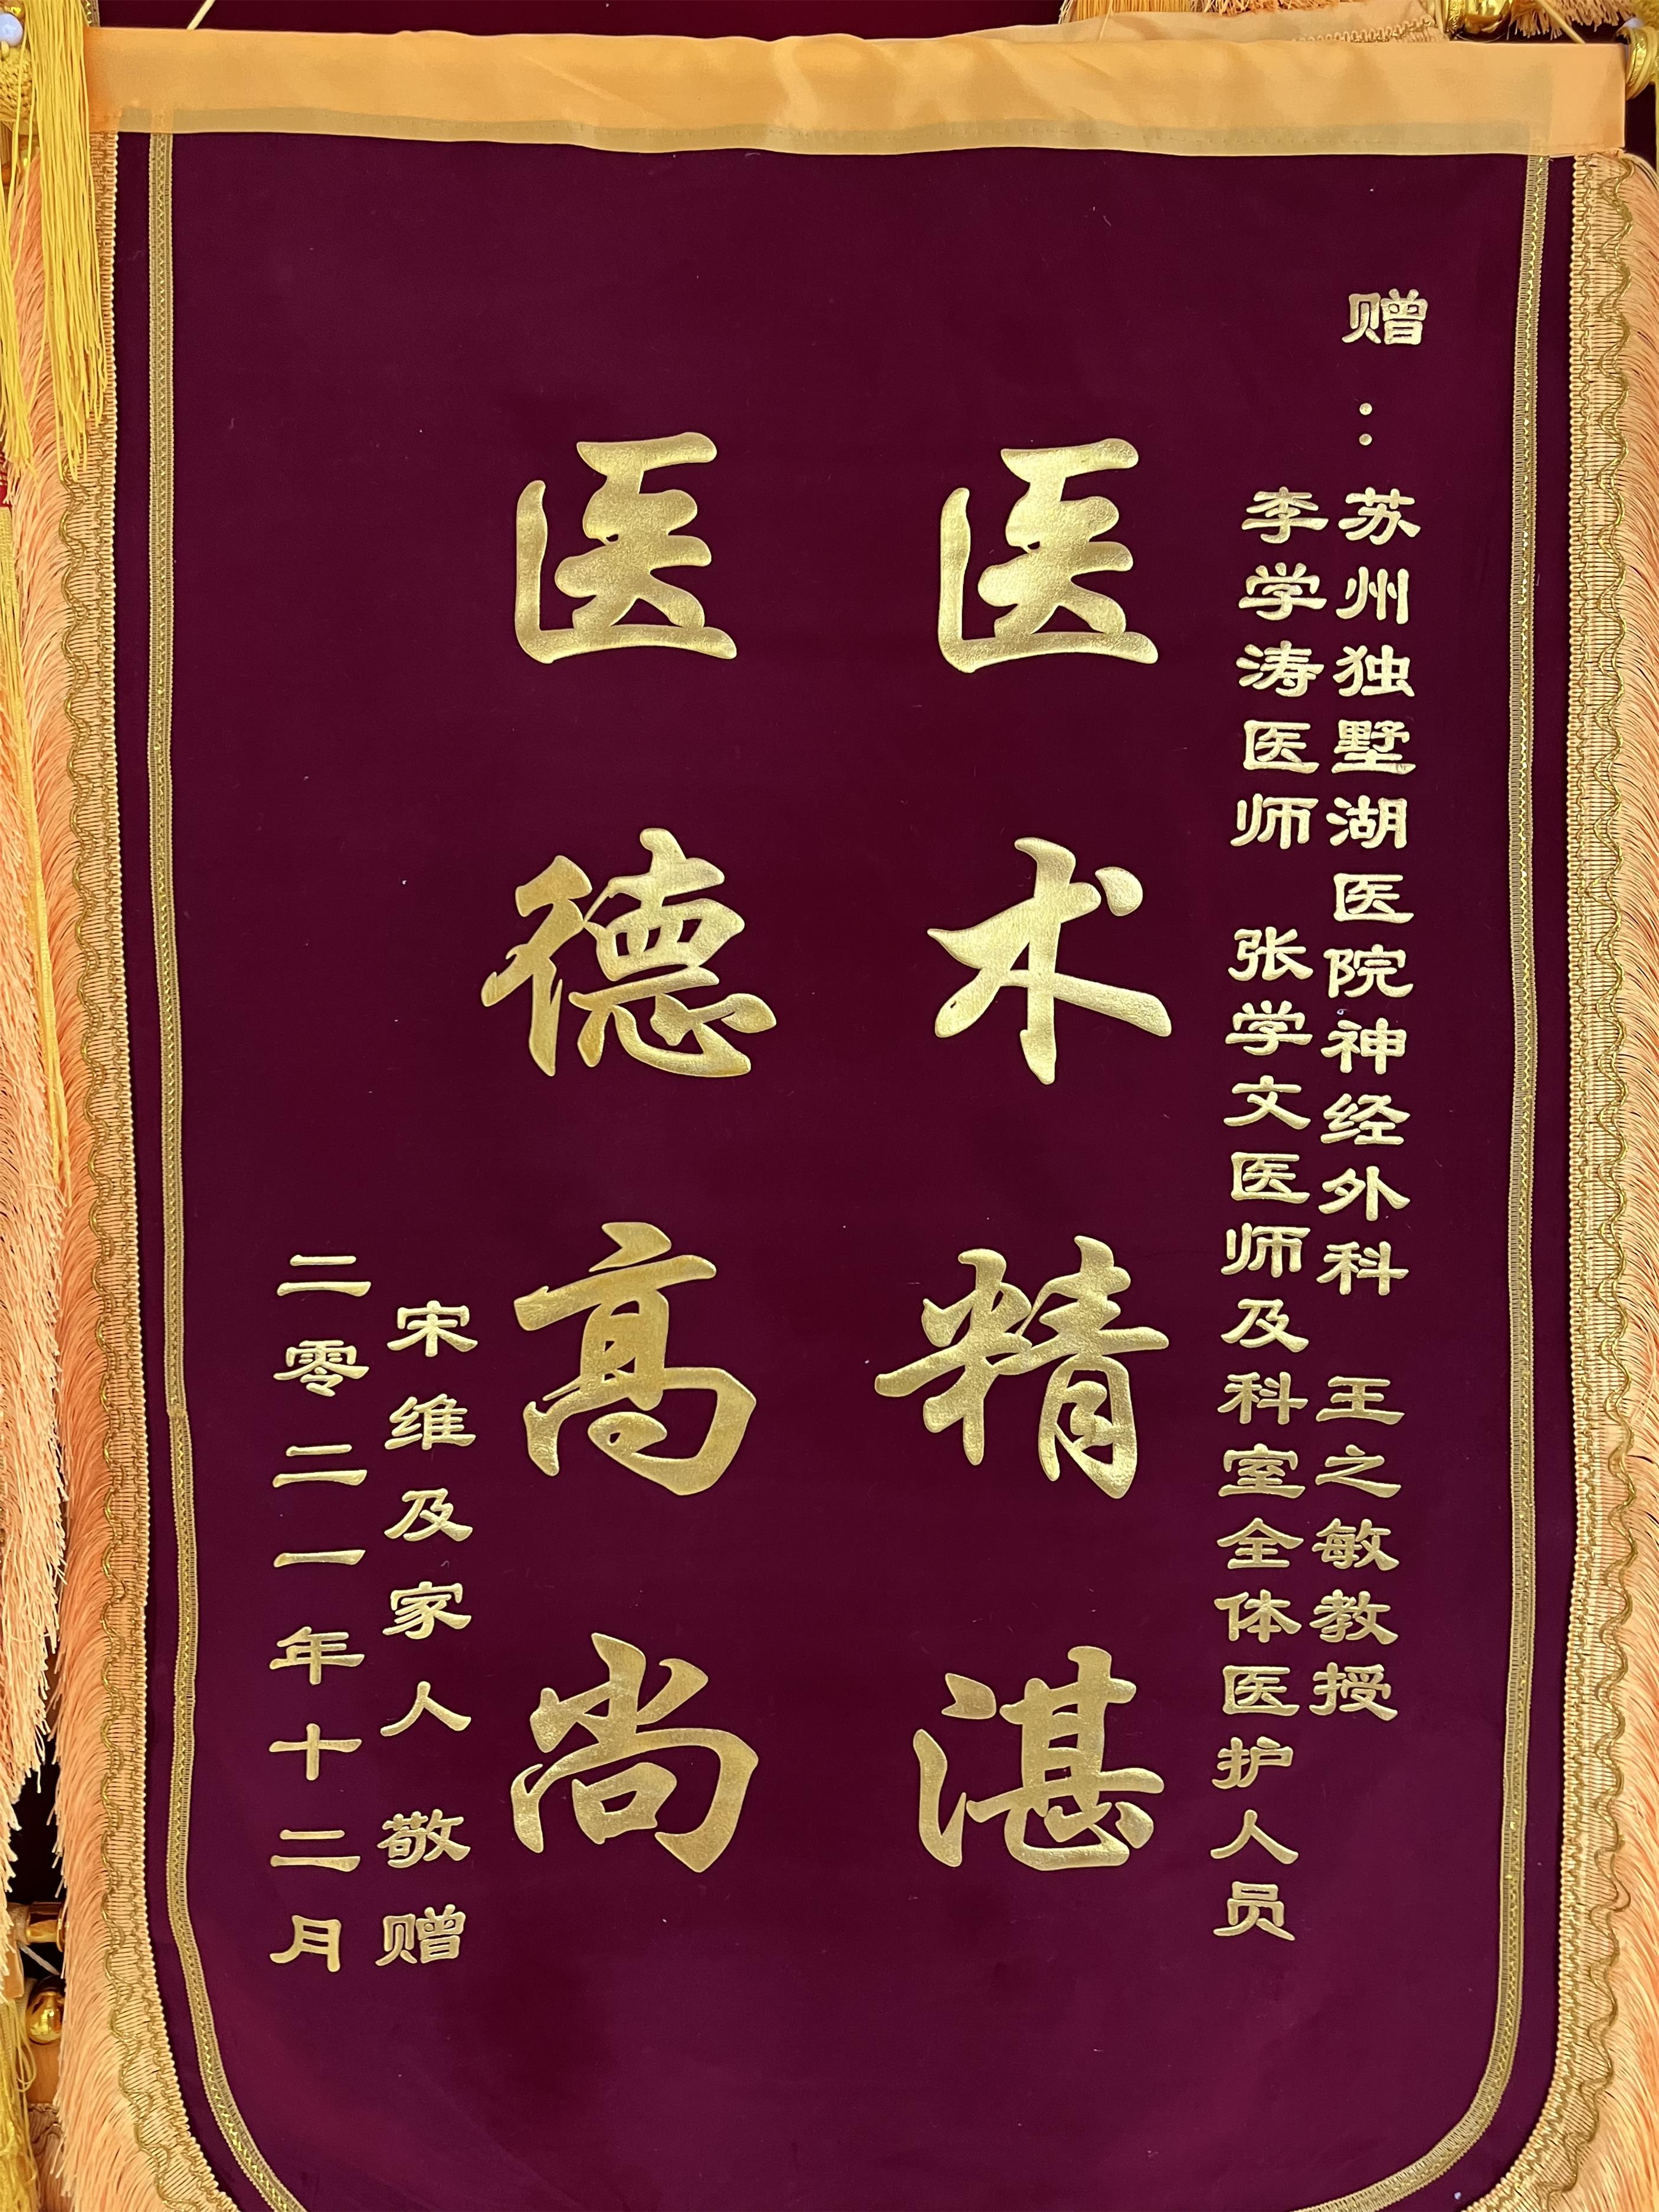 赠：苏州独墅湖医院神经外科 王之敏教授
李学涛医师 张学文医师及科室全体医护人员
医术精湛
医德高尚
宋维及家人 敬赠
二零二一年十二月